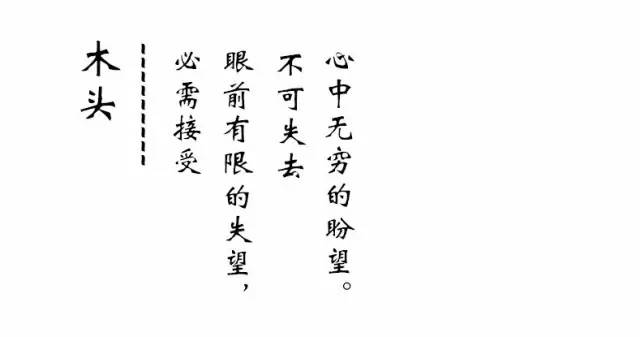 木头
必需接受
眼前有限的失望，
不可失去
心中无穷的盼望。